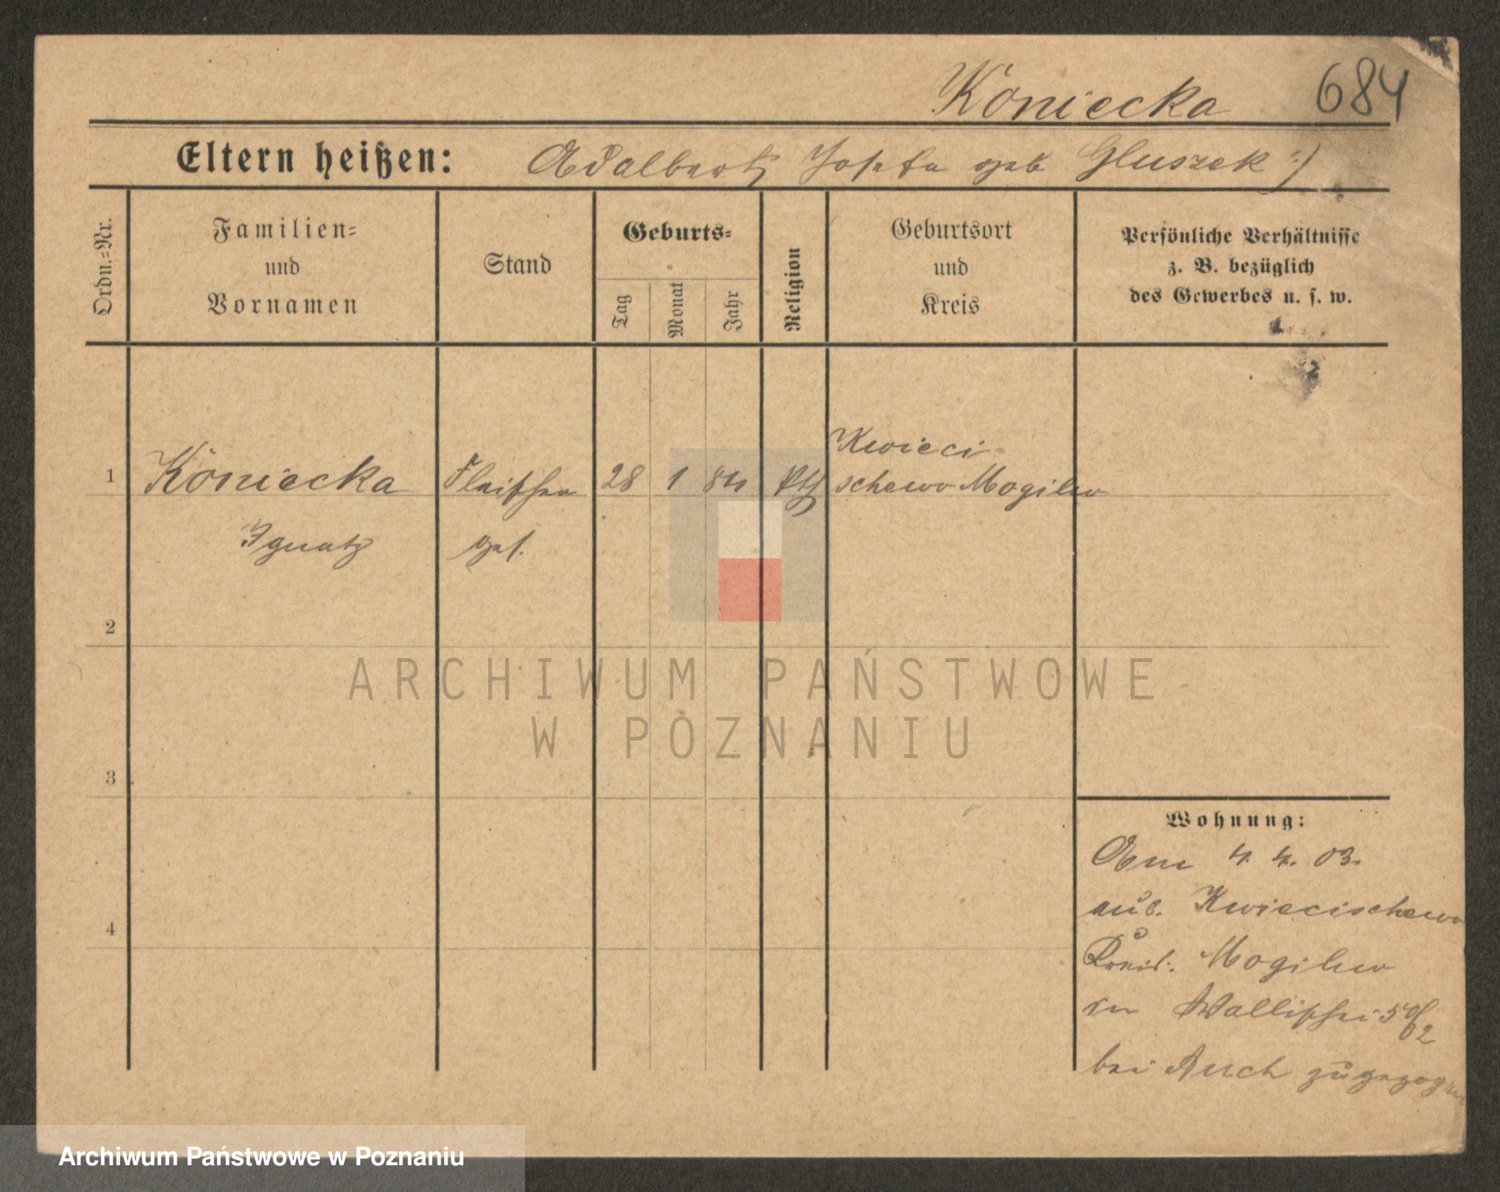 Koniecka 684
Eltern heißen: Adalbert Josefa geb Gluszek :)
Ordn.-Nr.
Familien-
und
Vornamen
Stand
Geburts-
Tag
Monat
Jahr
Religion
Geburtsort
und
Kreis
Persönliche Verhältnisse
z. B. bezüglich
des Gewerbes u. s. w.
Kwieci-
1 Koniecka Fleischer 28 1 84 kth schewo Mogilno
Ignatz ges.
2
3
4
Wohnung:
Am 4. 4. 03.
aus. Kwiecischewo
Kreis. Mogilno
Wallischei
bei zugezogen
ARCHIWUM PAŃSTWOWE
W POZNANIU
Archiwum Państwowe w Poznaniu